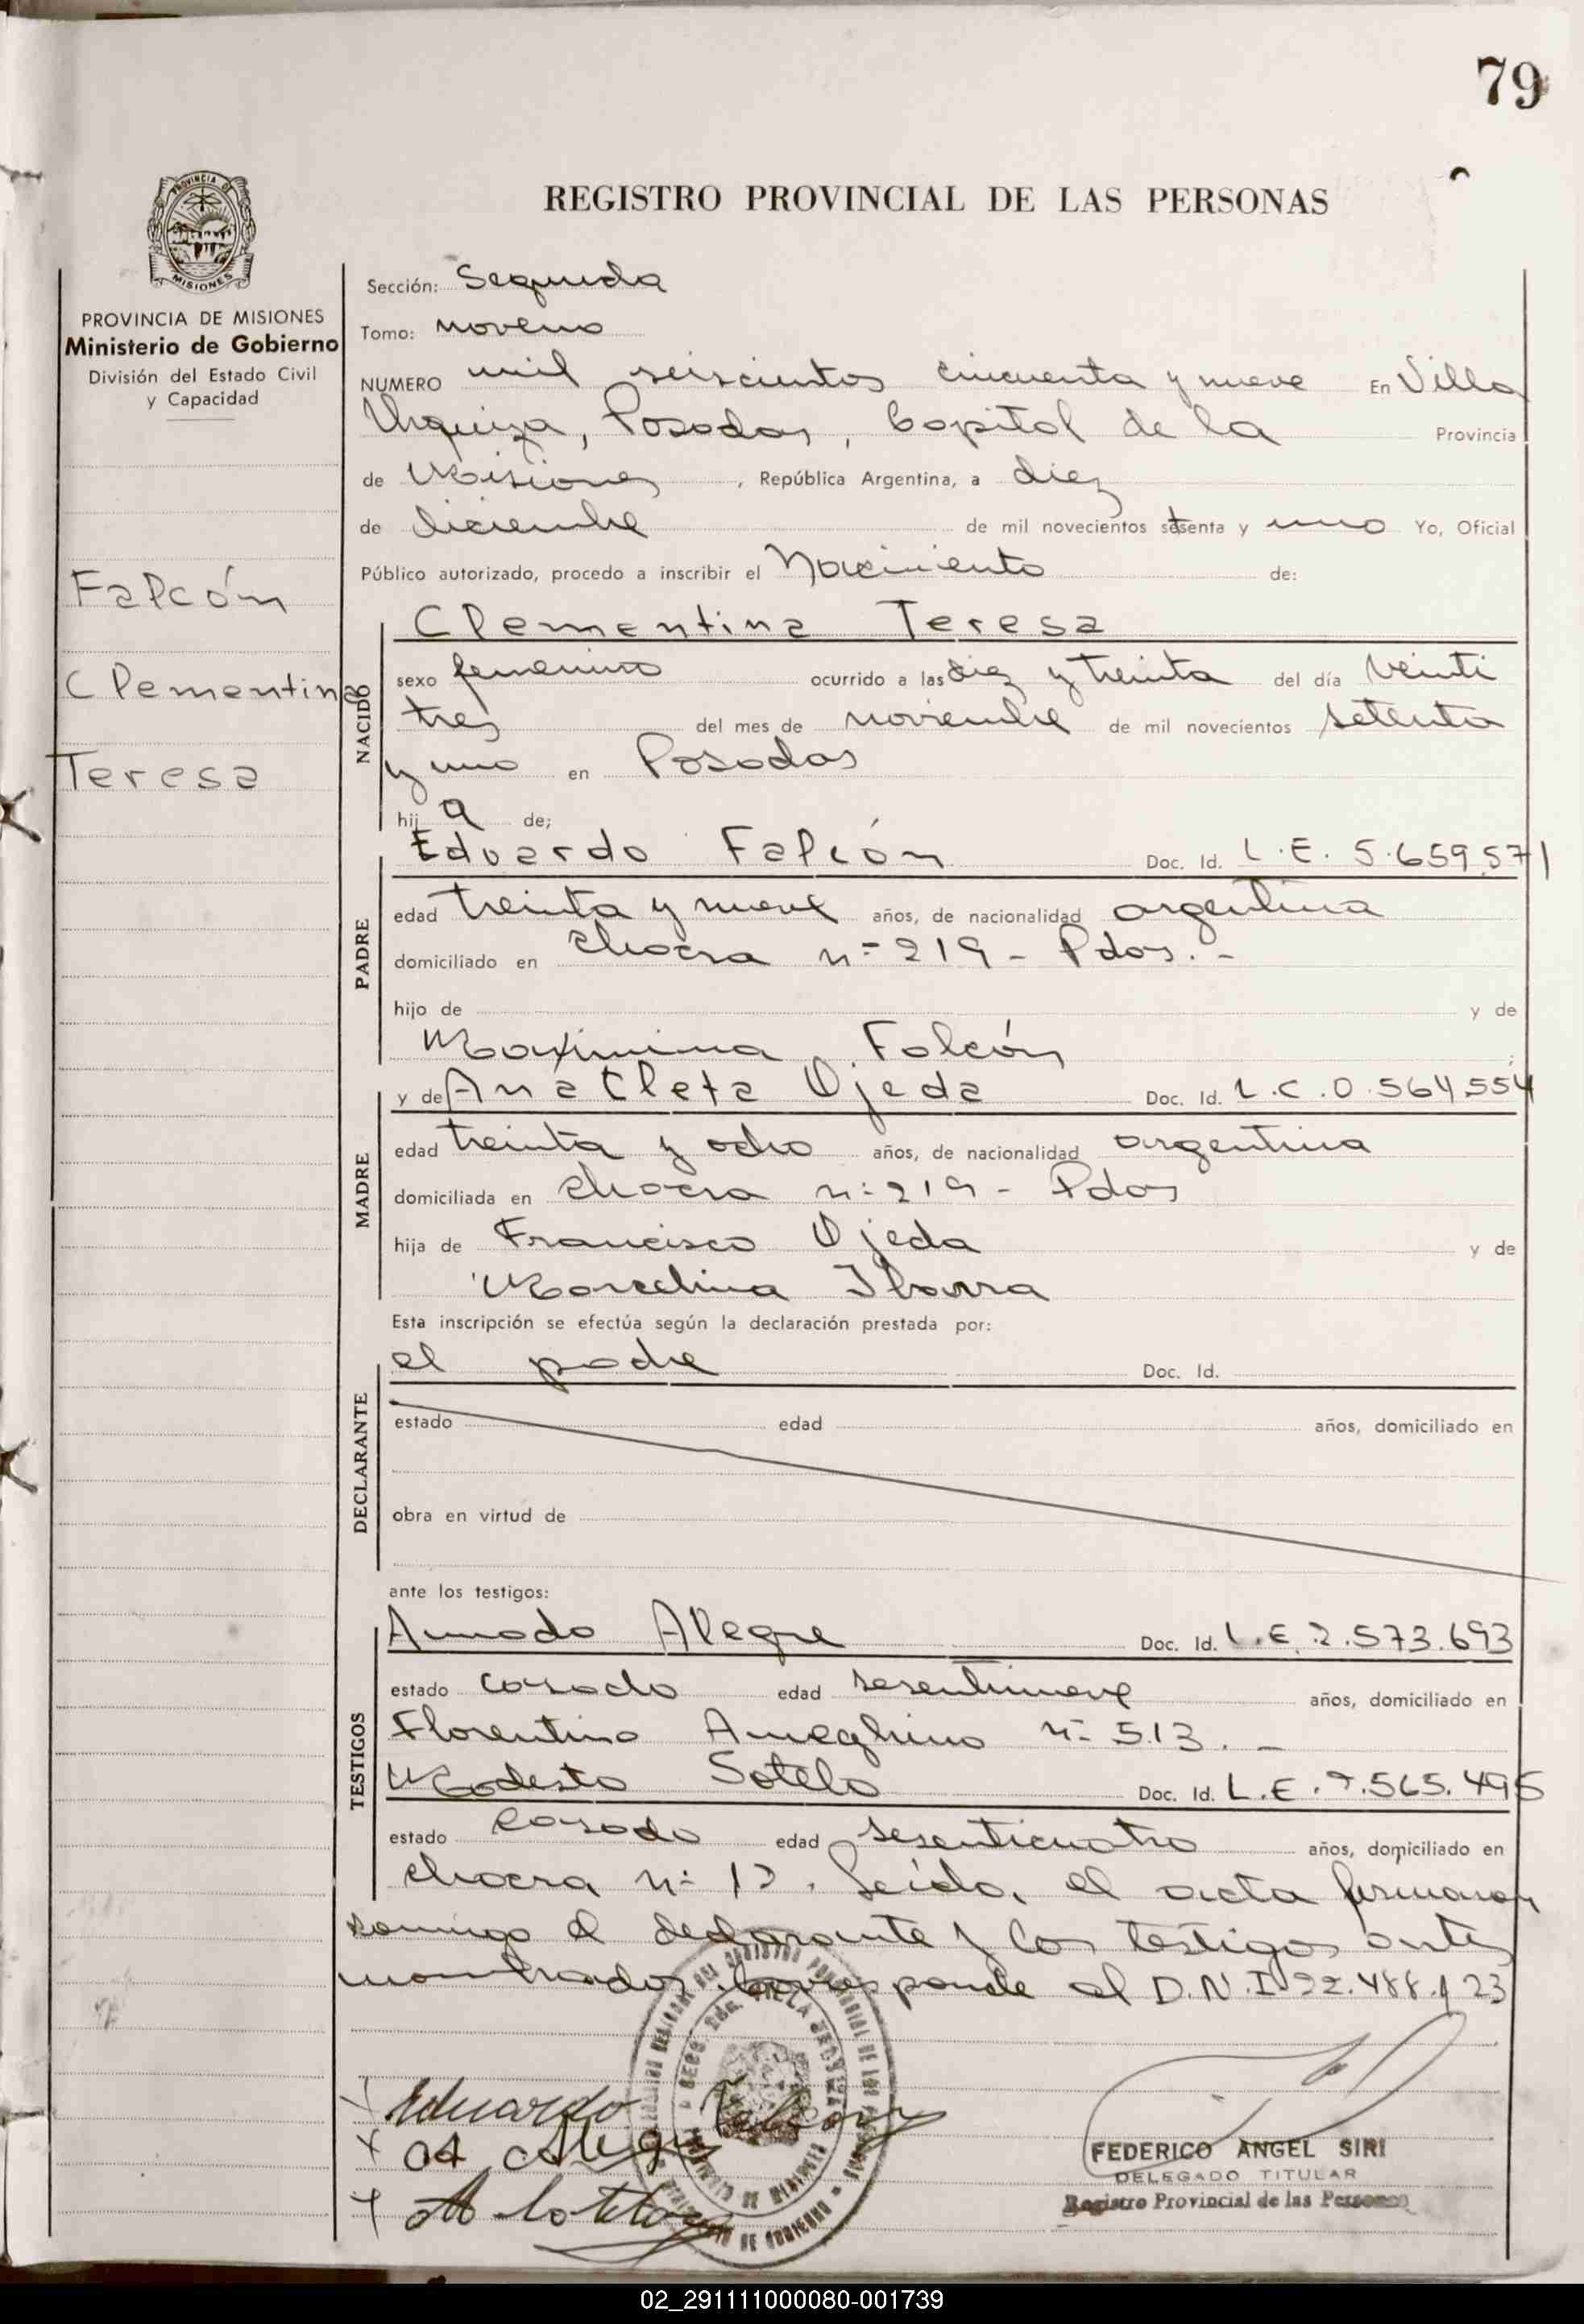 79
PROVINCIA DE
MISIONES
REGISTRO PROVINCIAL DE LAS PERSONAS
PROVINCIA DE MISIONES
Ministerio de Gobierno
División del Estado Civil
y Capacidad
Falcón
Clementina
Teresa
Sección: Segunda
Tomo: noveno
NUMERO mil seiscientos cincuenta y nueve En Villa
Urquiza, Posadas, Capital de la Provincia
de Misiones, República Argentina, a diez
de diciembre de mil novecientos setenta y uno Yo, Oficial
Público autorizado, procedo a inscribir el Nacimiento de:
NACIDO
Clementina Teresa
sexo femenino ocurrido a las diez y treinta del día veinti
tres del mes de noviembre de mil novecientos setenta
y uno en Posadas
hij a de;
PADRE
Eduardo Falcón Doc. Id. L.E. 5.659.571
edad treinta y nueve años, de nacionalidad argentina
domiciliado en chacra n= 219 - Pdas. -
hijo de y de
Maximina Falcón ;
MADRE
y de Anacleta Ojeda Doc. Id. L.C. 0.564.554
edad treinta y ocho años, de nacionalidad argentina
domiciliada en chacra n: 219 - Pdas
hija de Francisco Ojeda y de
Marcelina Ibarra
Esta inscripción se efectúa según la declaración prestada por:
DECLARANTE
el padre Doc. Id.
estado edad años, domiciliado en
obra en virtud de
ante los testigos:
TESTIGOS
Amado Alegre Doc. Id. L.E. 2.573.693
estado casado edad sesentinueve años, domiciliado en
Florentino Ameghino n= 513. -
Modesto Sotelo Doc. Id. L.E. .565.495
estado casado edad sesenticuatro años, domiciliado en
chacra n: Leída, el acta firmaron
conmigo el declarante y los testigos antes
nombrados. Corresponde al D.N.I. 22.488.123
Eduardo Falcon
Alegre
M Sotelo
FEDERICO ANGEL SIRI
DELEGADO TITULAR
Registro Provincial de las Personas
02_291111000080-001739